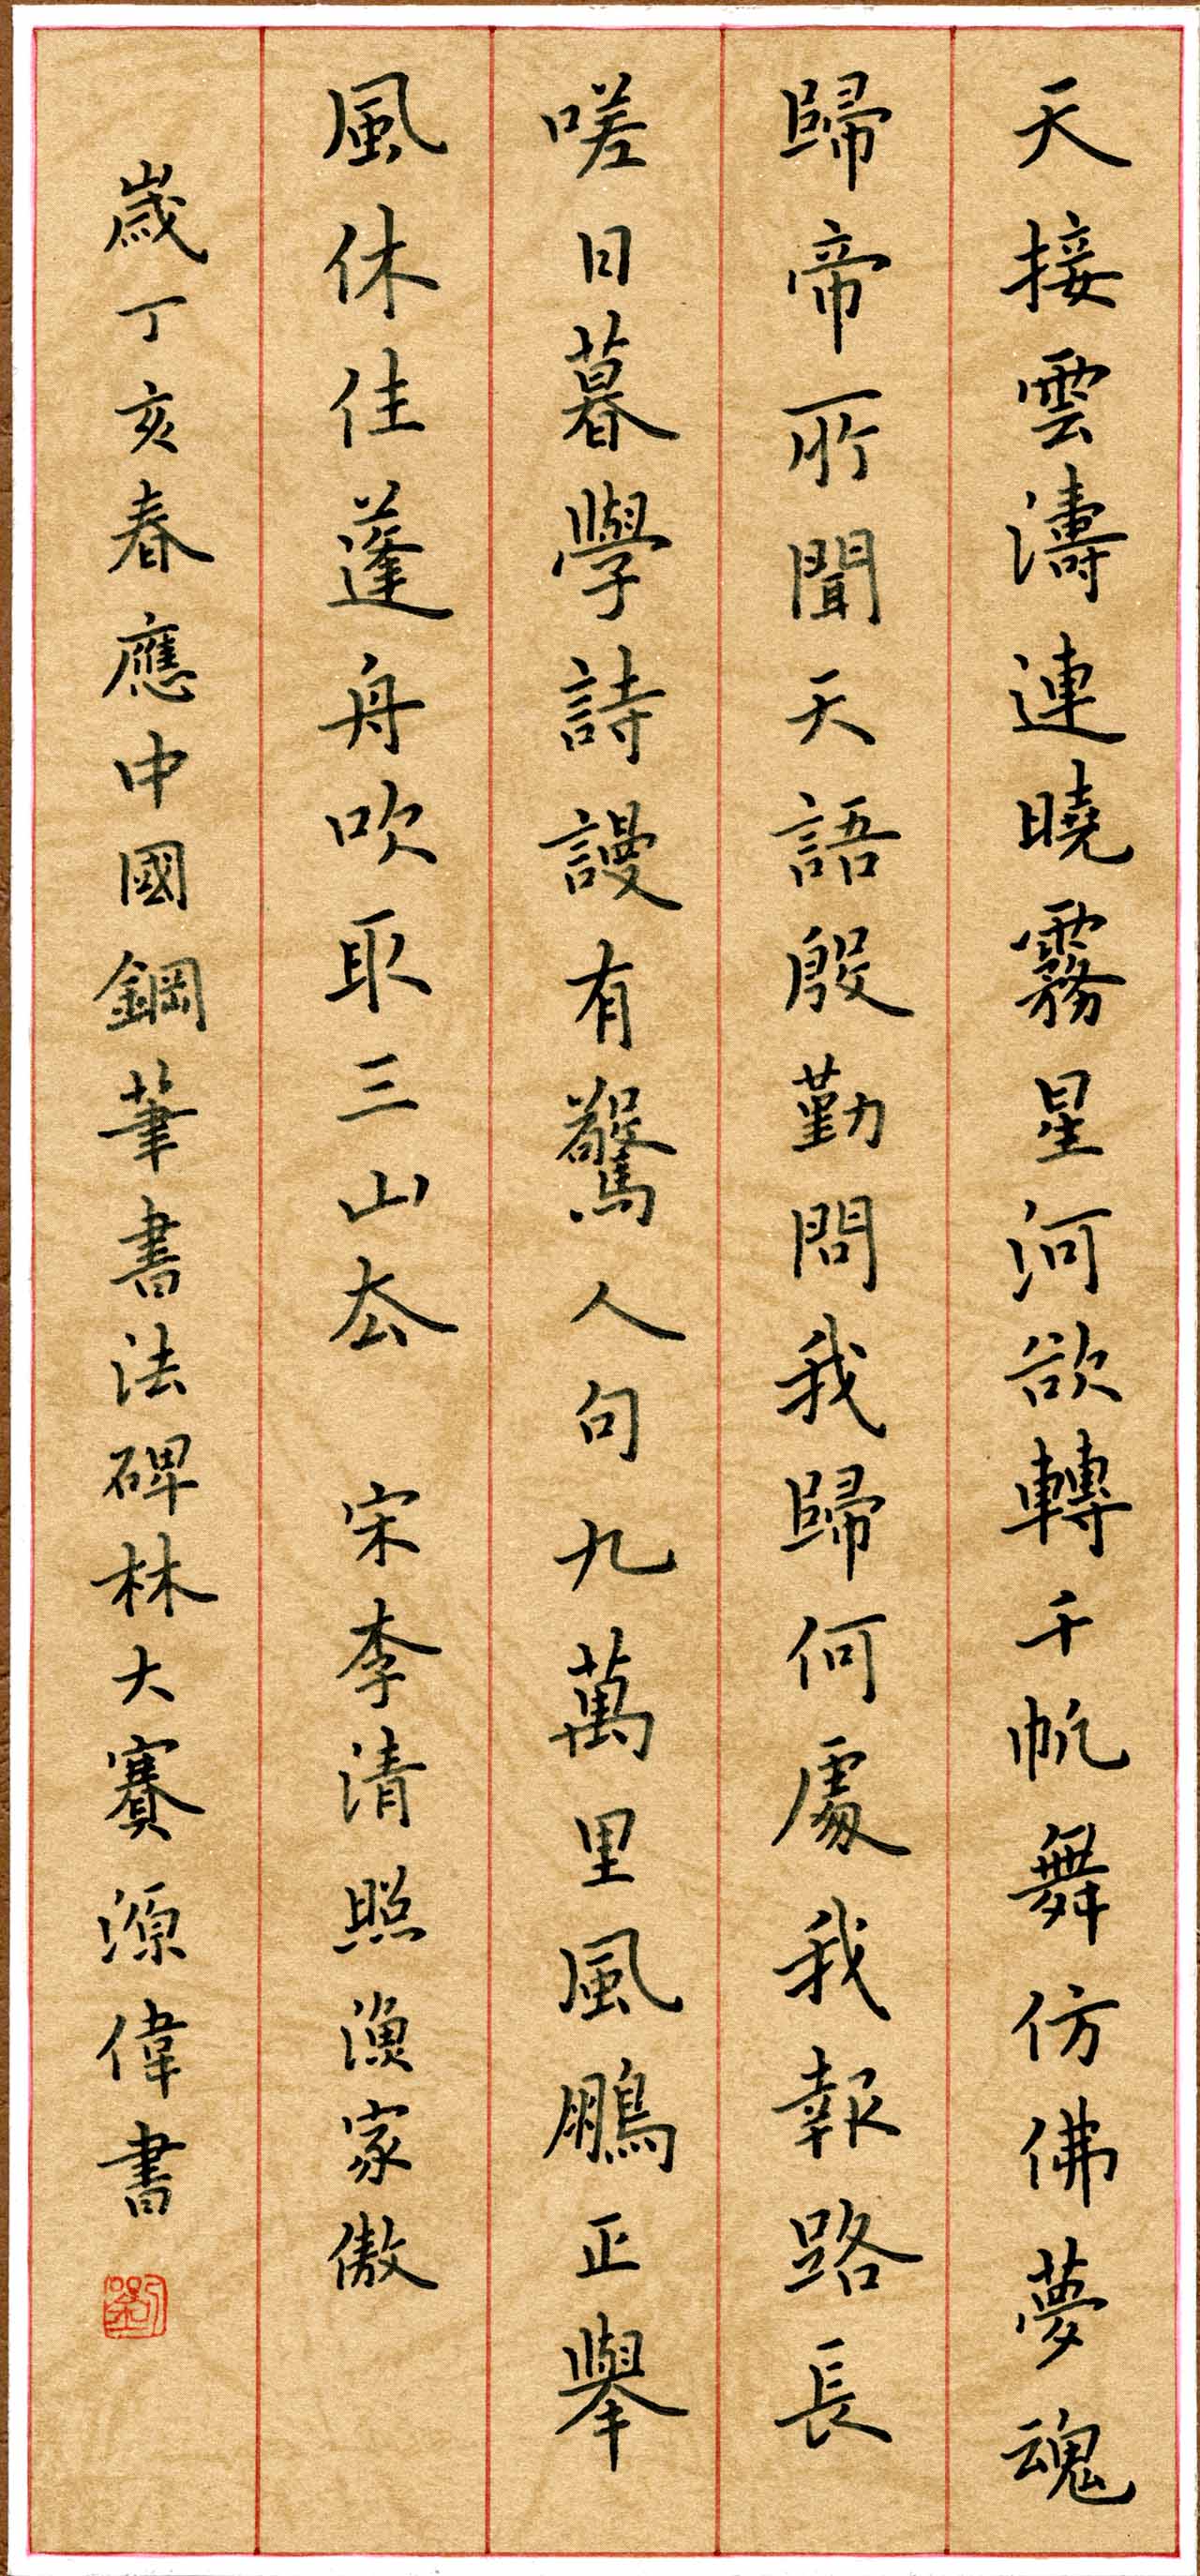 天接雲濤連曉霧星河欲轉千帆舞仿佛夢魂
歸帝所聞天語殷勤問我歸何處我報路長
嗟日暮學詩謾有驚人句九萬里風鵬正舉
風休住蓬舟吹取三山去 宋李清照漁家傲
歲丁亥春應中國鋼筆書法碑林大賽源偉書
劉